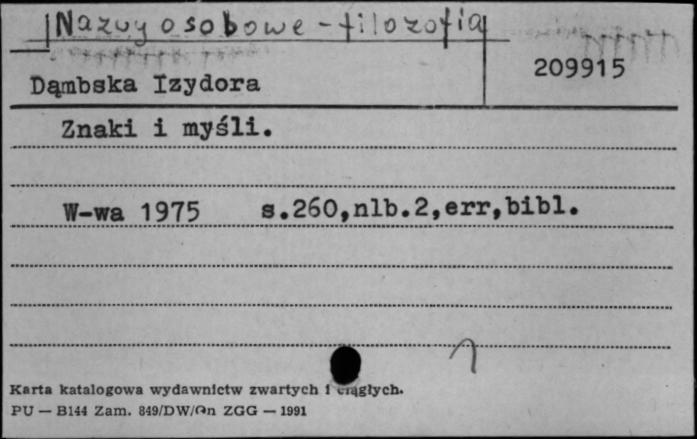 Nazwy osobowe - filozofia
209915
Dąmbska Izydora
Znaki i myśli.
W-wa 1975 s.260,nlb.2,err,bibl.
Karta katalogowa wydawnictw zwartych i ciągłych.
PU — B144 Zam. 849/DW/On ZGG — 1991